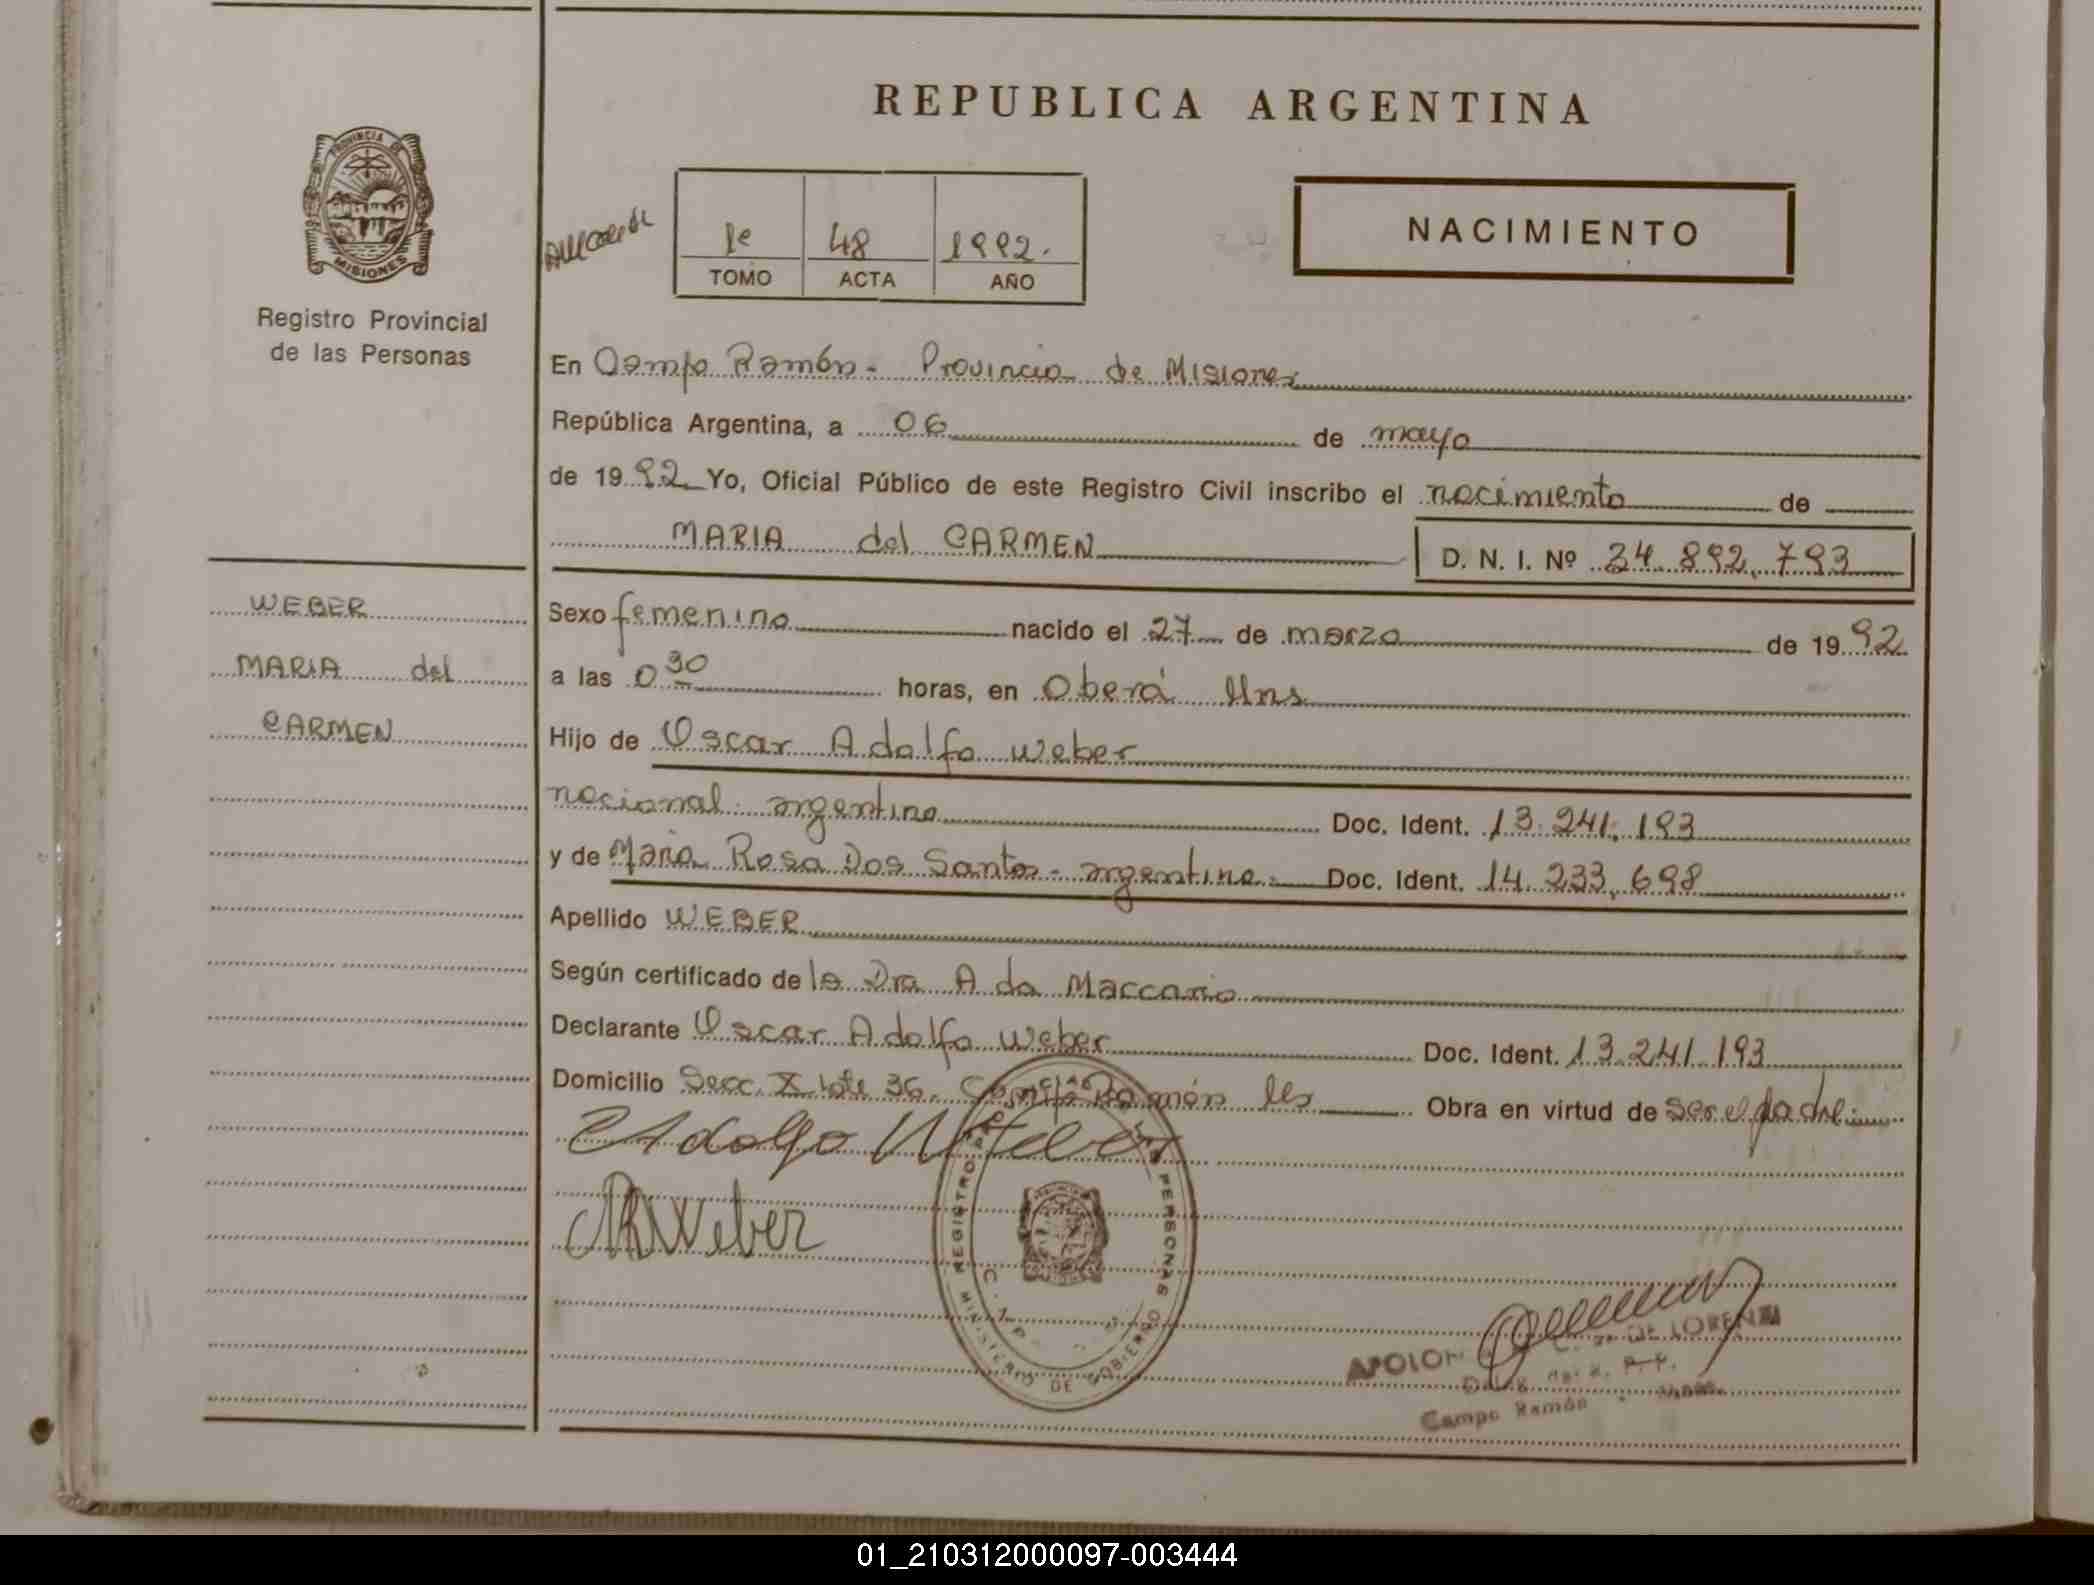 REPUBLICA ARGENTINA
PROVINCIA DE
MISIONES
Registro Provincial
de las Personas
1º 48 1992.
TOMO ACTA AÑO
NACIMIENTO
En Campo Ramón - Provincia de Misiones
República Argentina, a 06 de mayo
de 1992 Yo, Oficial Público de este Registro Civil inscribo el nacimiento de
MARIA del CARMEN D. N. I. Nº 34.892.793
WEBER
MARIA del
CARMEN
Sexo femenino nacido el 27 de marzo de 1992
a las 0 30 horas, en Oberá Mns
Hijo de Oscar Adolfo Weber
nacional argentino Doc. Ident. 13.241.193
y de Maria Rosa Dos Santos - argentina - Doc. Ident. 14.233.698
Apellido WEBER
Según certificado de la Dra Ada Maccario
Declarante Oscar Adolfo Weber Doc. Ident. 13.241.193
Domicilio Secc. X lote 36. Campo Ramón Ms Obra en virtud de ser el padre
Adolfo Weber
MRWeber
REGISTRO PERSONAS
MINISTERIO DE GOBIERNO
DE LORENZI
Campo Ramón
01_210312000097-003444